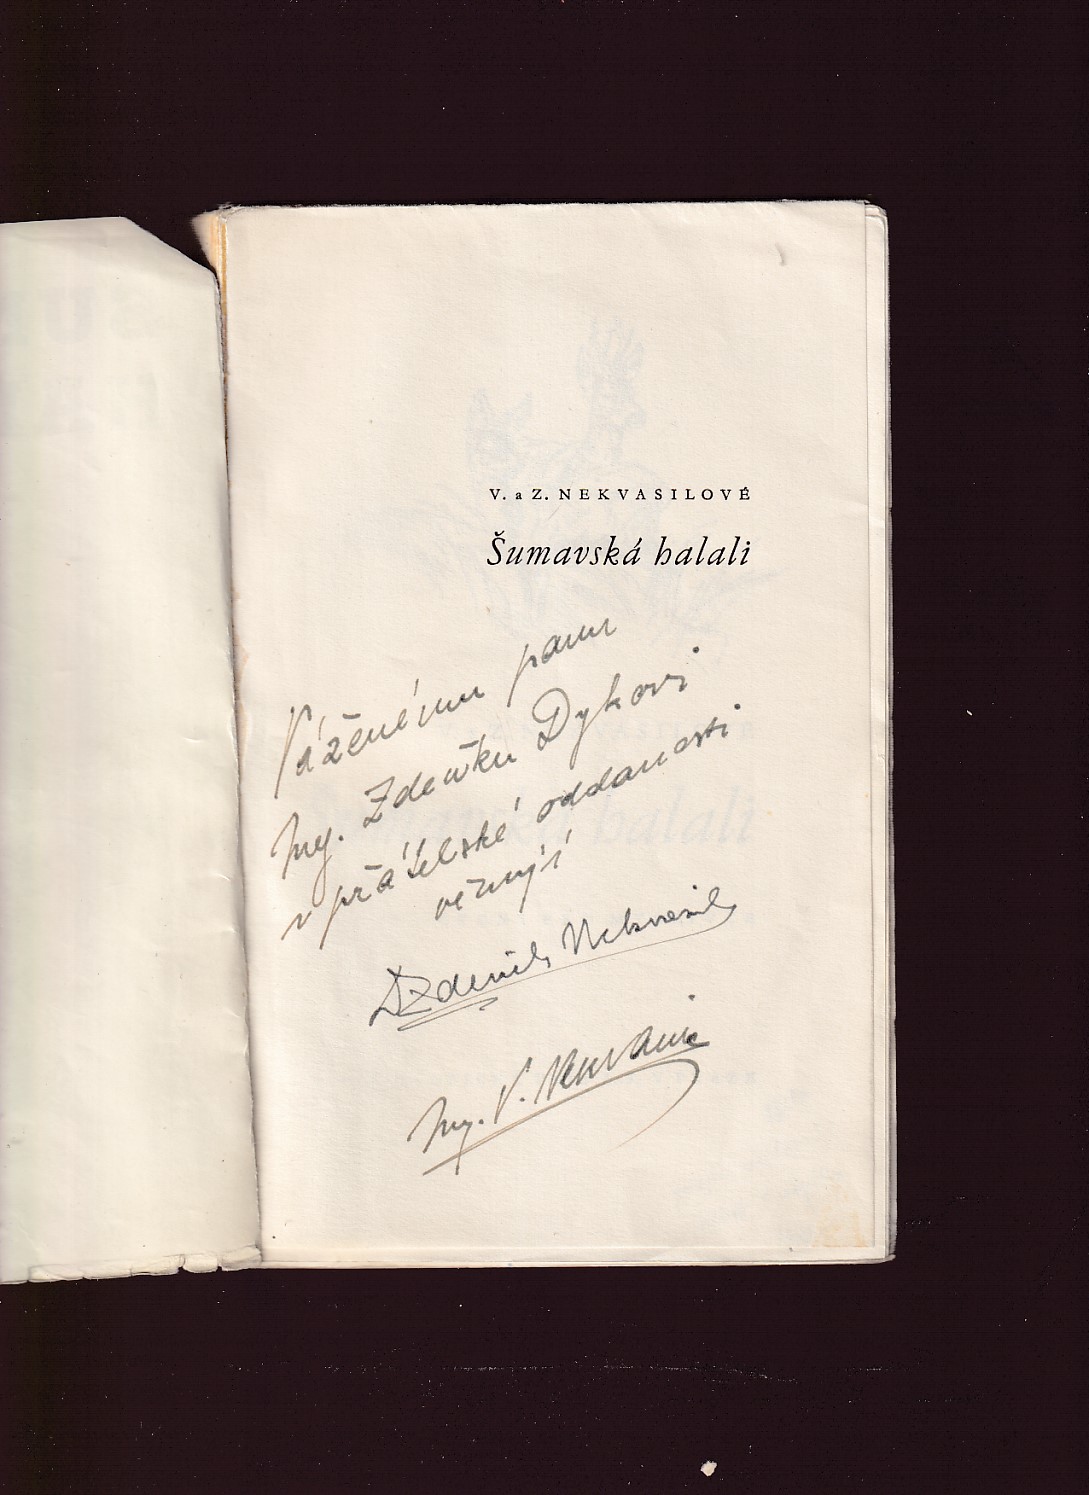 V. a Z. NEKVASILOVÉ
Šumavská halali
Váženému panu
Ing. Zdeňku Dykovi
v přátelské oddanosti
věnují
Zdeněk Nekvasil
Ing. V. Nekvasil